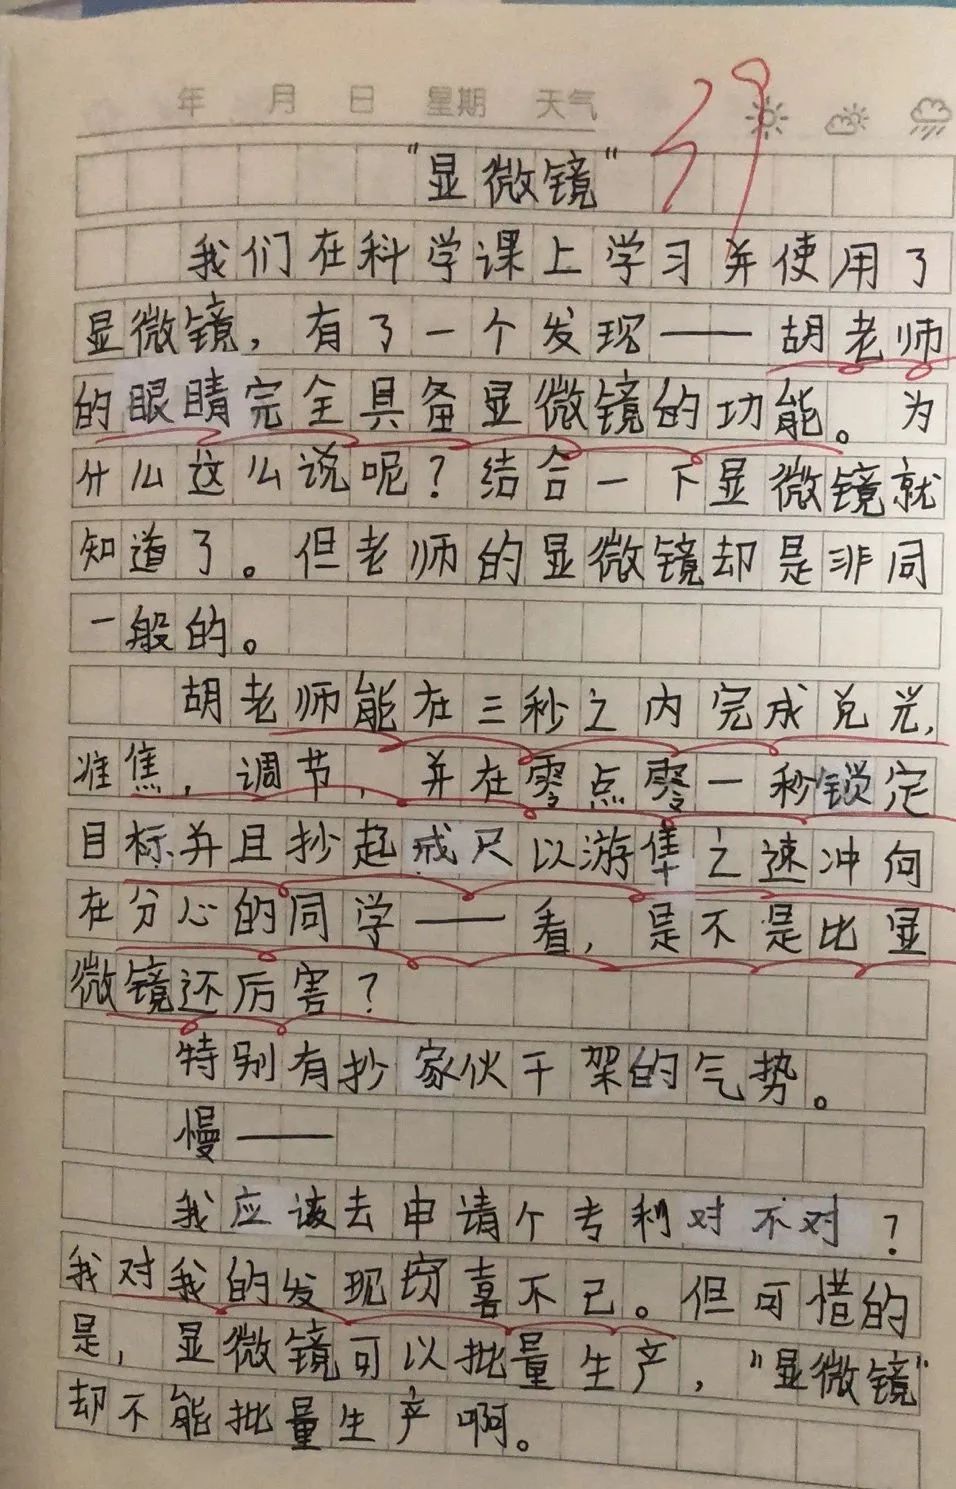 年 月 日 星期 天气
29
"显微镜"
我们在科学课上学习并使用了
显微镜，有了一个发现——胡老师
的眼睛完全具备显微镜的功能。为
什么这么说呢？结合一下显微镜就
知道了。但老师的显微镜却是非同
一般的。
胡老师能在三秒之内完成兑光，
准焦，调节，并在零点零一秒锁定
目标并且抄起戒尺以游隼之速冲向
在分心的同学——看，是不是比显
微镜还厉害？
特别有抄家伙干架的气势。
慢——
我应该去申请个专利对不对？
我对我的发现窃喜不已。但可惜的
是，显微镜可以批量生产，"显微镜"
却不能批量生产啊。